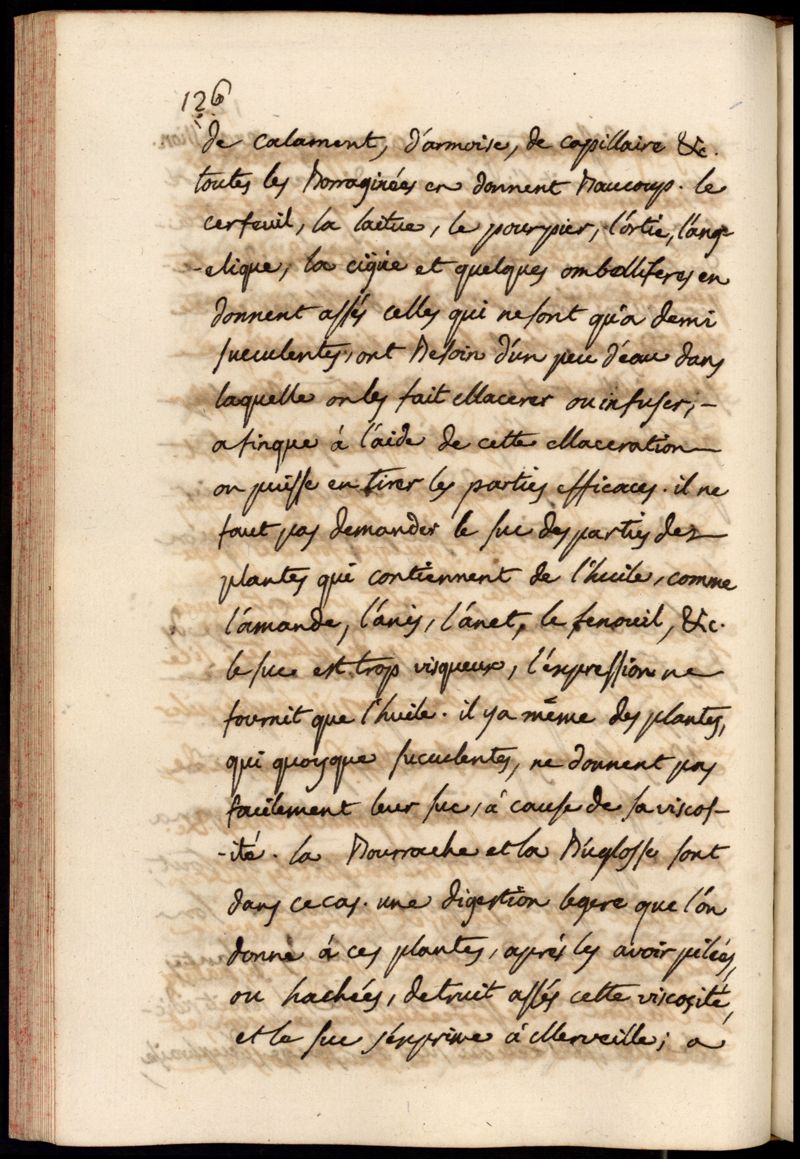 126
de calament, d'armoise, de capillaire &c.
toutes les Borraginées en donnent Baucoup. le
cerfeuil, la laitue, le pourpier, l'ortie, l'ang-
-elique, la ciguë et quelques ombelliferes en
donnent assés celles qui ne sont qu'a demi
succulentes, ont Besoin d'un peu d'eau dans
laquelle on les fait Macerer ou infuser, -
afin que á l'aide de cette Maceration
on puisse en tirer les parties efficaces. il ne
faut pas demander le suc des parties des
plantes qui contiennent de l'huile, comme
l'amande, l'anis, l'anet, le fenouil, &c.
le suc est trop visqueux, l'éxpression ne
fournit que l'huile. il y a même des plantes,
qui quoyque succulentes, ne donnent pas
facilement leur suc, á cause de sa viscos-
-ité. la Bourrache et la Buglosse sont
dans ce cas. une digestion legere que l'on
donne á ces plantes, aprés les avoir pilées,
ou hachées, detruit assés cette viscosité,
et le suc s'éxprime á Merveille; a